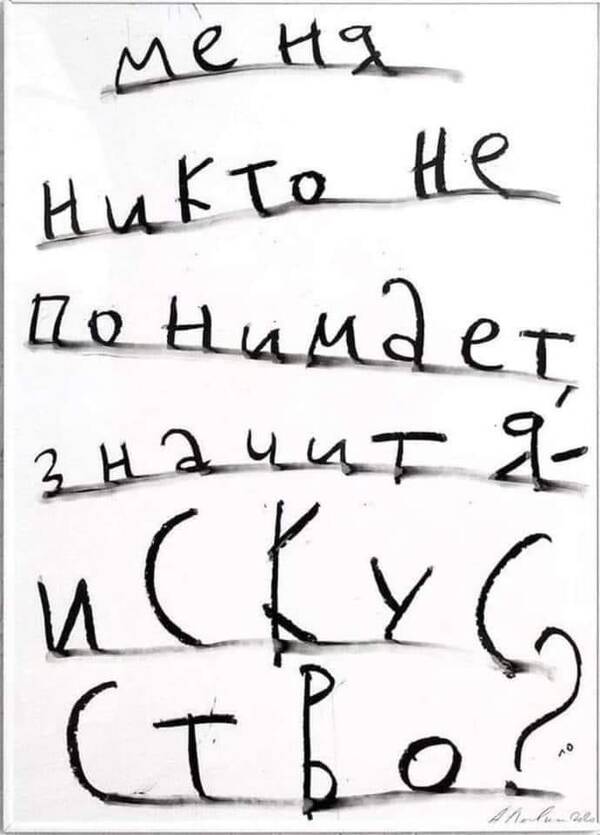 меня
никто не
понимает,
значит я-
искус
ство?